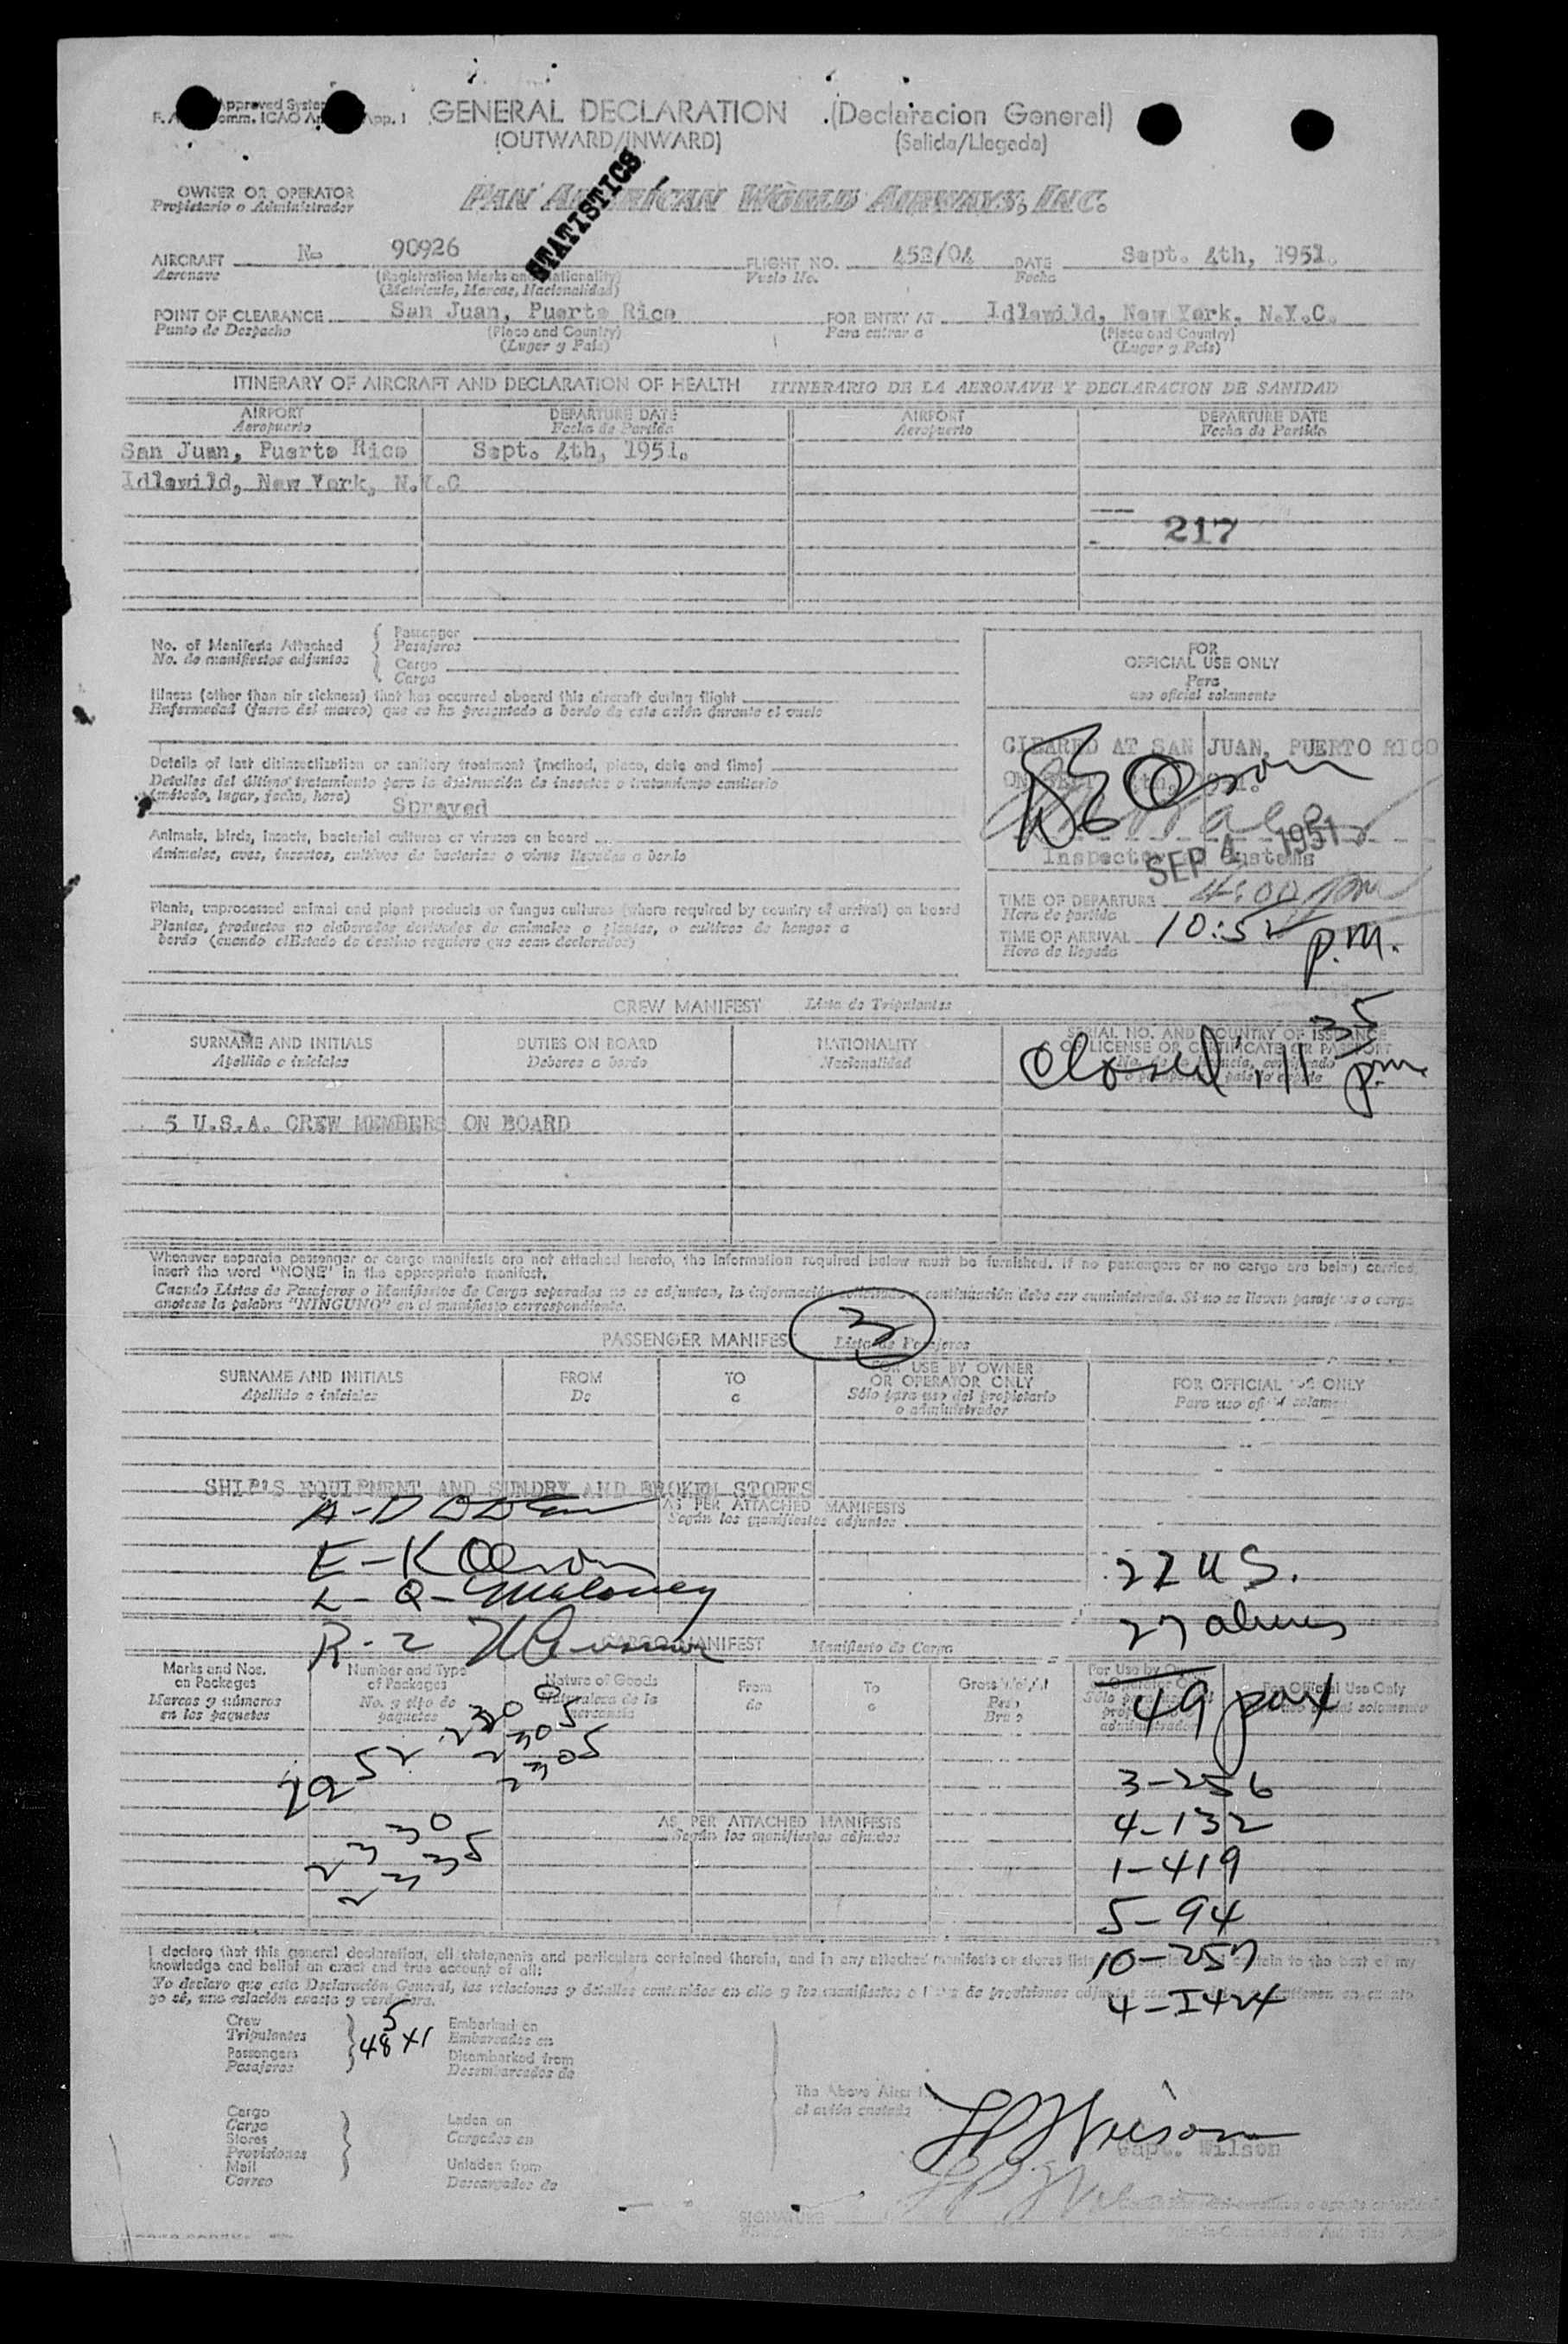 Approved System
Comm. ICAO App. 1
GENERAL DECLARATION (Declaracion General)
(OUTWARD/INWARD) (Salida/Llegada)
STATISTICS
OWNER OR OPERATOR PAN AMERICAN WORLD AIRWAYS, INC.
Propietario o Administrador
AIRCRAFT N- 90926 FLIGHT NO. 452/04 DATE Sept. 4th, 1951.
Aeronave (Registration Marks and Nationality) Vuelo No. Fecha
(Matricula, Marcas, Nacionalidad)
POINT OF CLEARANCE San Juan, Puerto Rico FOR ENTRY AT Idlewild, New York, N.Y.C.
Punto de Despacho (Place and Country) Para entrar a (Place and Country)
(Lugar y Pais) (Lugar y Pais)
ITINERARY OF AIRCRAFT AND DECLARATION OF HEALTH ITINERARIO DE LA AERONAVE Y DECLARACION DE SANIDAD
AIRPORT DEPARTURE DATE AIRPORT DEPARTURE DATE
Aeropuerto Fecha de Partida Aeropuerto Fecha de Partida
San Juan, Puerto Rico Sept. 4th, 1951.
Idlewild, New York, N.Y.C
217
No. of Manifests Attached Passenger
No. de manifiestos adjuntos Pasajeros
Cargo
Carga
FOR
OFFICIAL USE ONLY
Para
uso oficial solamente
Illness (other than air sickness) that has occurred aboard this aircraft during flight
Enfermedad (fuera del mareo) que se ha presentado a bordo de este avión durante el vuelo
CLEARED AT SAN JUAN, PUERTO RICO
Details of last disinsectization or sanitary treatment (method, place, date and time)
Detalles del último tratamiento para la destrucción de insectos o tratamiento sanitario
(método, lugar, fecha, hora) Sprayed
Animals, birds, insects, bacterial cultures or viruses on board
Animales, aves, insectos, cultivos de bacterias o virus llevados a bordo
Inspector Customs
SEP 4 1951
Plants, unprocessed animal and plant products or fungus cultures (where required by country of arrival) on board
Plantas, productos no elaborados derivados de animales o plantas, o cultivos de hongos a
bordo (cuando el Estado de destino requiere que sean declarados)
TIME OF DEPARTURE 4:00 pm
Hora de partida
TIME OF ARRIVAL 10:52 p.m.
Hora de llegada
CREW MANIFEST Lista de Tripulantes
SURNAME AND INITIALS DUTIES ON BOARD NATIONALITY SERIAL NO. AND COUNTRY OF ISSUANCE
Apellido e iniciales Deberes a bordo Nacionalidad OF LICENSE OR CERTIFICATE OR PASSPORT
Closed 11 35 p.m.
5 U.S.A. CREW MEMBERS ON BOARD
Whenever separate passenger or cargo manifests are not attached hereto, the information required below must be furnished. If no passengers or no cargo are being carried,
insert the word "NONE" in the appropriate manifest.
Cuando Listas de Pasajeros o Manifiestos de Carga separados no se adjuntan, la información solicitada a continuación debe ser suministrada. Si no se llevan pasajeros o carga
anotese la palabra "NINGUNO" en el manifiesto correspondiente.
PASSENGER MANIFEST Lista de Pasajeros
SURNAME AND INITIALS FROM TO FOR USE BY OWNER OR OPERATOR ONLY FOR OFFICIAL USE ONLY
Apellido e iniciales De a Sólo para uso del propietario o administrador Para uso oficial solamente
SHIP'S EQUIPMENT AND SUNDRY AND BROKEN STORES
AS PER ATTACHED MANIFESTS
Según los manifiestos adjuntos
E-K Olson
L-Q-Maloney
22 U S.
27 aliens
CARGO MANIFEST Manifiesto de Carga
Marks and Nos. on Packages Number and Type of Packages Nature of Goods From To Gross Weight For Use by Owner or Operator Only For Official Use Only
Marcas y números en los paquetes No. y tipo de paquetes Naturaleza de la mercancía de a Peso Bruto
49 pax
2300
2305
2305
2952
3-256
4-132
AS PER ATTACHED MANIFESTS
Según los manifiestos adjuntos
2330
2335
1-419
5-94
10-257
4-I424
I declare that this general declaration, all statements and particulars contained therein, and in any attached manifests or stores lists to the best of my
knowledge and belief an exact and true account of all:
Yo declaro que esta Declaración General, las relaciones y detalles contenidos en ella y los manifiestos o listas de provisiones adjuntos contienen en cuanto
yo sé, una relación exacta y verdadera.
Crew 5 Embarked on
Tripulantes Embarcados en
Passengers 48 X1 Disembarked from
Pasajeros Desembarcados de
The Above Aircraft
el avión anotado
Cargo
Carga Laden on
Stores Cargados en
Provisiones
Mail Unladen from
Correo Descargados de
Capt. Wilson
SIGNATURE